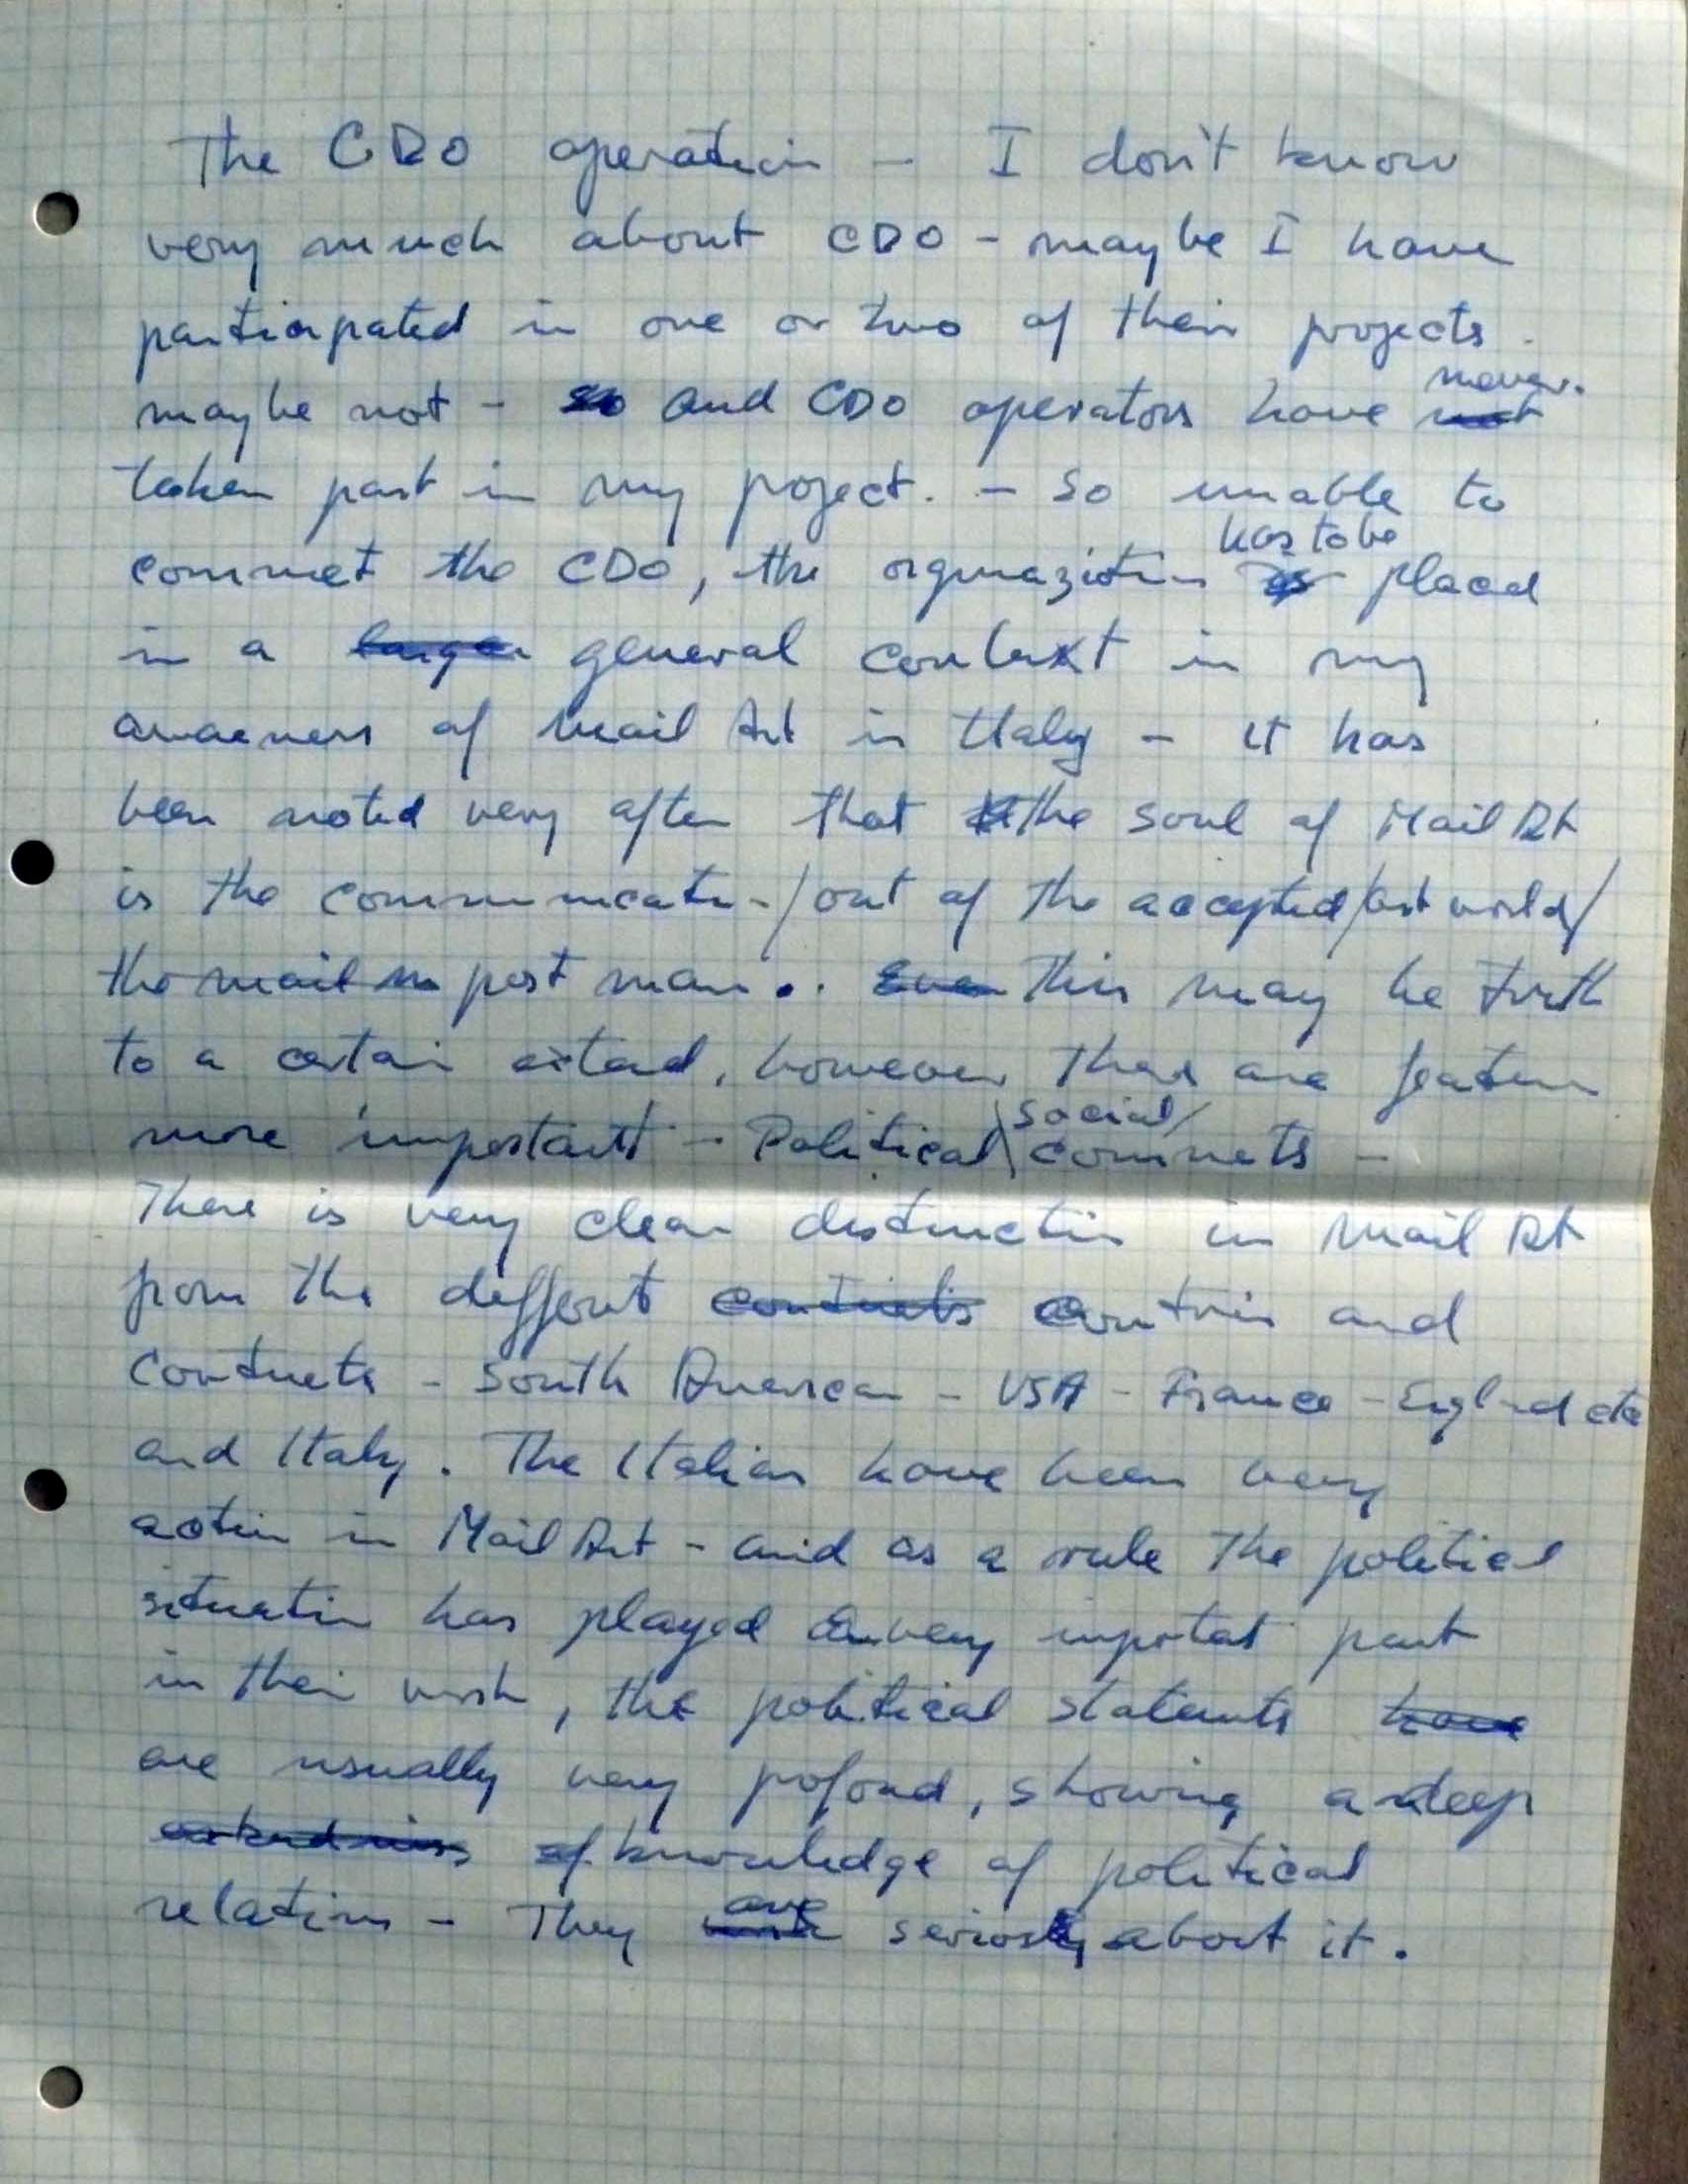 The CDO operation - I don't know
very much about CDO - maybe I have
participated in one or two of their projects -
maybe not - and CDO operators have never
taken part in my project. - so unable to
commet the CDO, the orgnaziotin has to be placed
in a larger general context in my
awarenes of Mail Art in Italy - it has
been noted very often that the soul of Mail Art
is the communicatin - / out of the accepted / art world /
the mail post man. Even This may be truth
to a certain extend, however there are featurs
more important - Political \ social / commets -
There is very clear distinctin in Mail Art
from the diffrent contries and
- South American - USA - France - England etc
and Italy. The Italian have been very
active in Mail Art - and as a rule The political
situatin has played a very impotat part
in their work, the political statemts have
are usually very pofond, showing a deep
of knowledge of political
relations - They are seriosly about it.